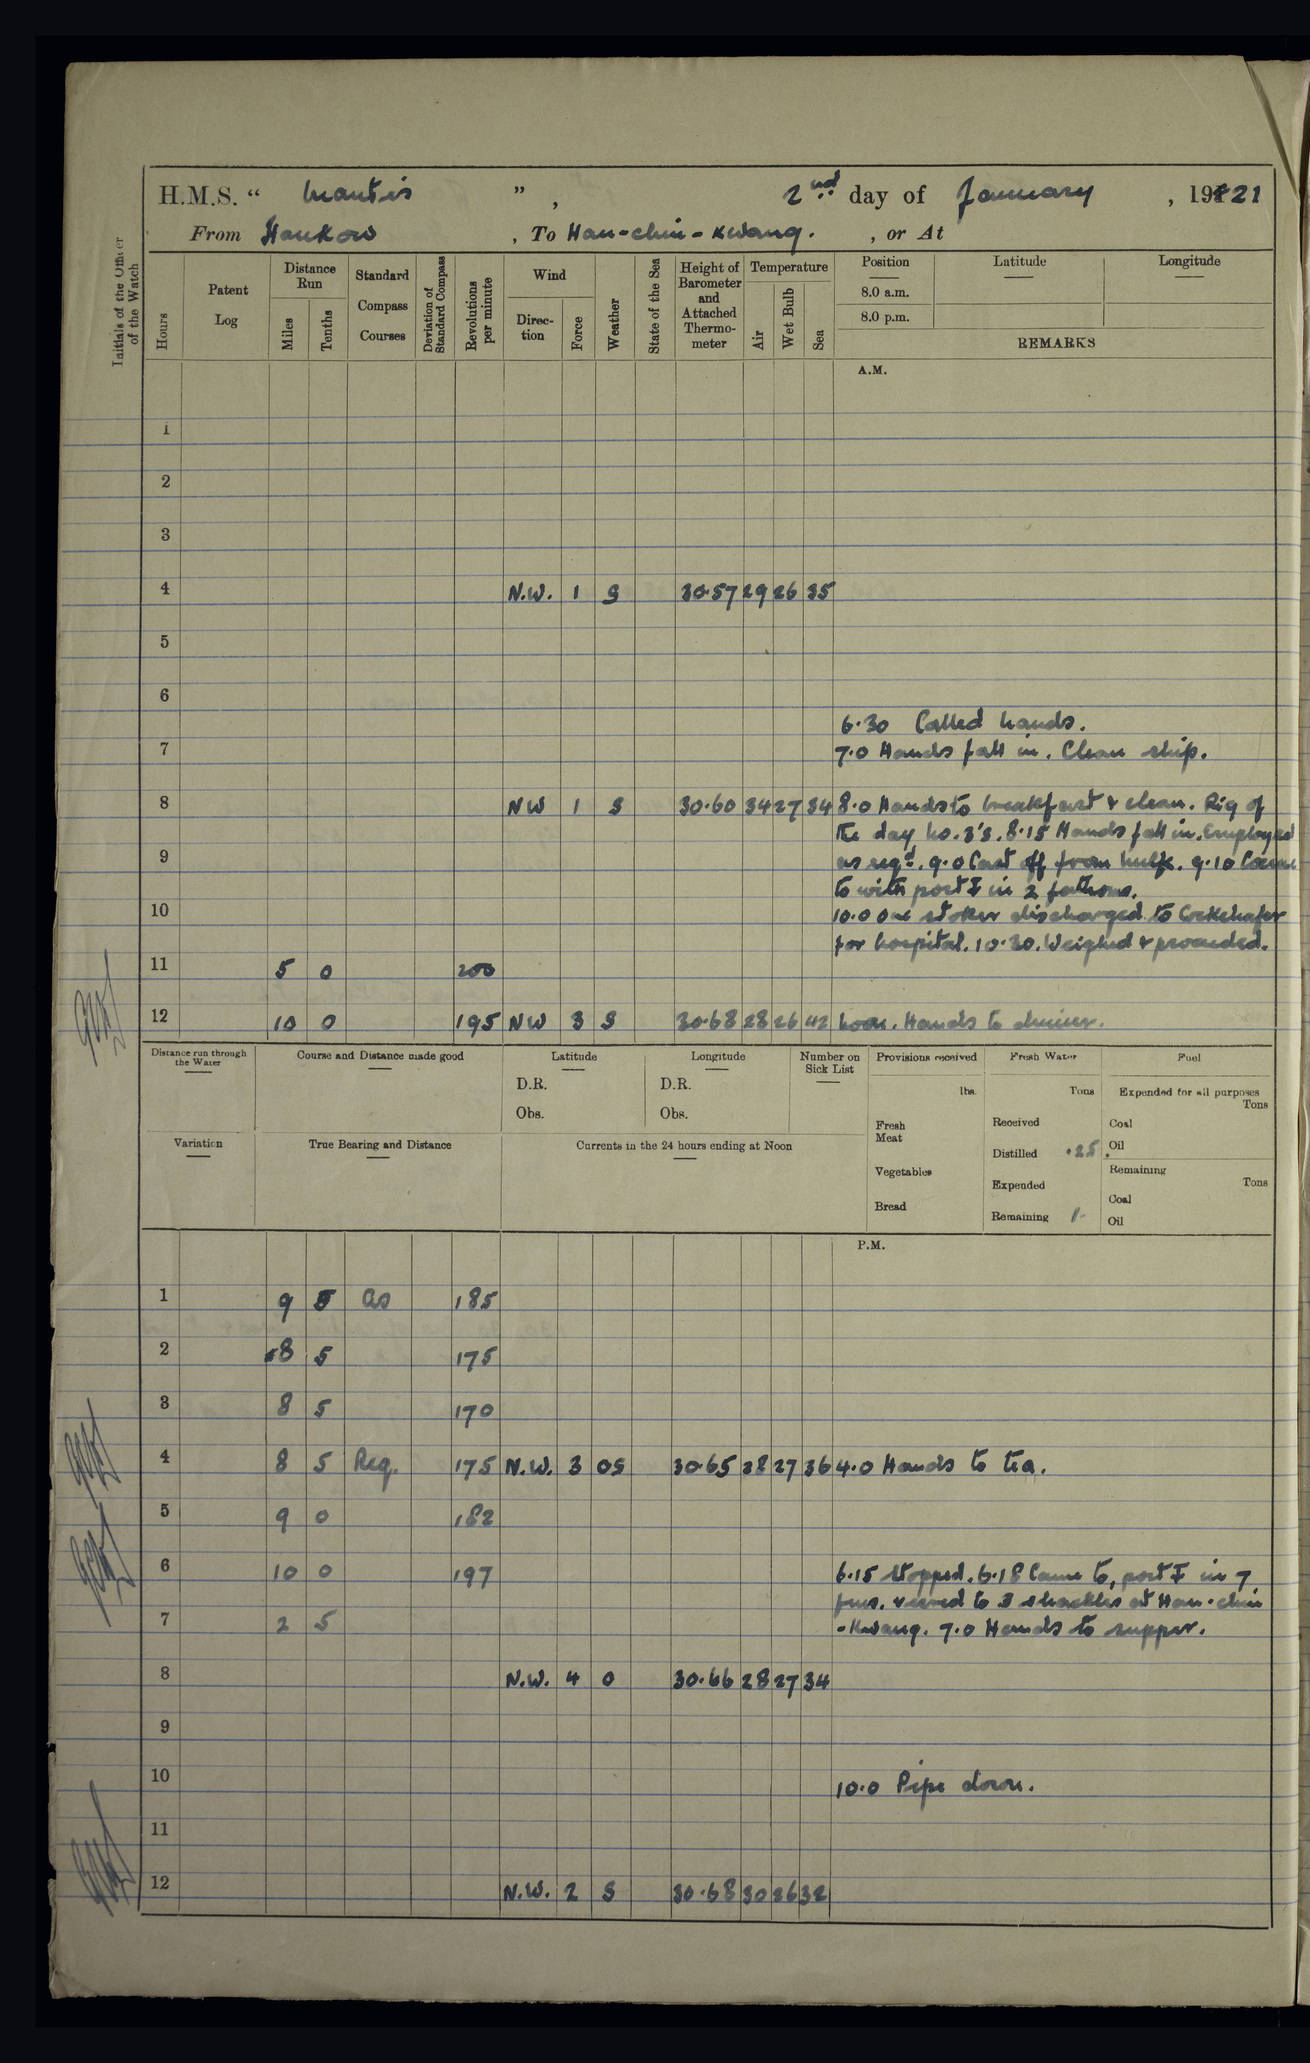 H.M.S. “ Mantis ”, 2nd day of January, 1921
From Hankow, To Han-chin-Kwang. , or At
Initials of the Officer of the Watch
Hours
Patent Log
Distance Run
Miles
Tenths
Standard Compass Courses
Deviation of Standard Compass
Revolutions per minute
Wind
Direction
Force
Weather
State of the Sea
Height of Barometer and Attached Thermometer
Temperature
Air
Wet Bulb
Sea
Position
Latitude
Longitude
8.0 a.m.
8.0 p.m.
REMARKS
A.M.
1
2
3
4 N.W. 1 S 30.57 29 26 35
5
6
6.30 Called hands.
7 7.0 Hands fall in. Clean ship.
8 NW 1 S 30.60 34 27 34 8.0 Hands to breakfast & clean. Rig of
the day No. 3's. 8.15 Hands fall in. Employed
9 as reqd. 9.0 Cast off from hulk. 9.10 Came
to with port ⚓ in 2 fathoms.
10 10.0 One stoker discharged to Cockchafer
for hospital. 10.30. Weighed & proceeded.
11 5 0 200
12 10 0 195 NW 3 S 30.68 28 26 42 Noon. Hands to dinner.
Distance run through the Water
Course and Distance made good
Latitude
D.R.
Obs.
Longitude
D.R.
Obs.
Number on Sick List
Provisions received
lbs.
Fresh Meat
Vegetables
Bread
Fresh Water
Tons
Received
Distilled .25.
Expended
Remaining 1.
Fuel
Expended for all purposes
Tons
Coal
Oil
Remaining
Tons
Coal
Oil
Variation
True Bearing and Distance
Currents in the 24 hours ending at Noon
P.M.
1 9 5 as 185
2 8 5 175
3 8 5 170
4 8 5 Req. 175 N.W. 3 OS 30.65 28 27 36 4.0 Hands to tea.
5 9 0 182
6 10 0 197 6.15 Stopped. 6.18 Came to, port ⚓ in 7
fms. veered to 3 shackles at Han-chin
7 2 5 -Kwang. 7.0 Hands to supper.
8 N.W. 4 O 30.66 28 27 34
9
10 10.0 Pipe down.
11
12 N.W. 2 S 30.68 30 26 32